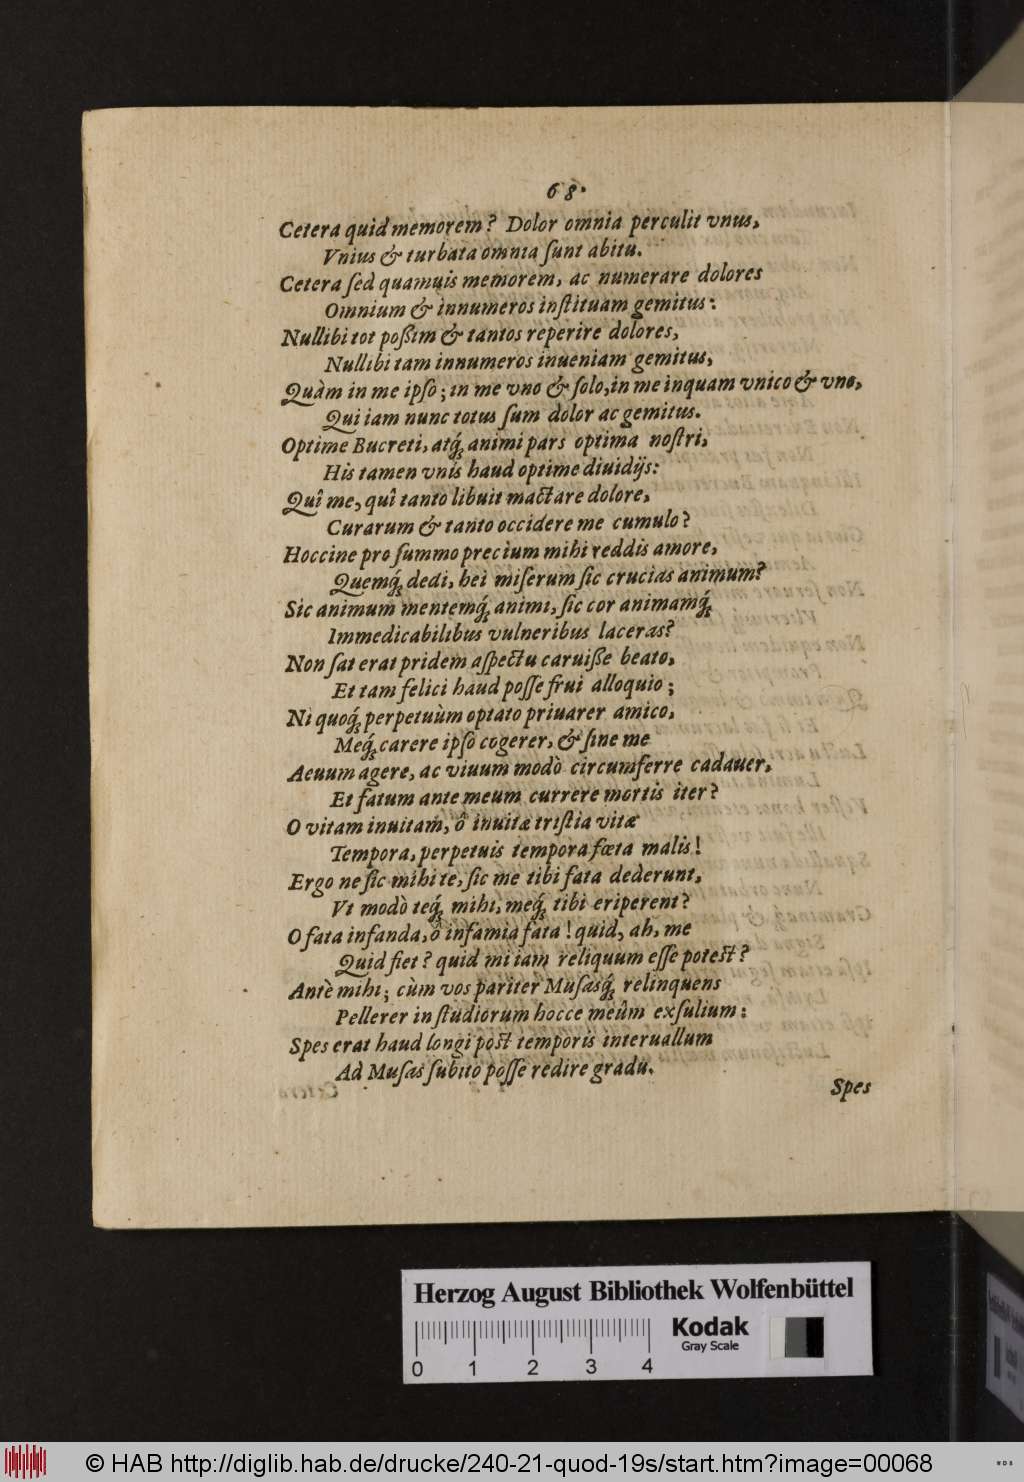 68.
Cetera quid memorem? Dolor omnia perculit vnus,
Vnius & turbata omnia sunt abitu.
Cetera sed quamuis memorem, ac numerare dolores
Omnium & innumeros instituam gemitus:
Nullibi tot possim & tantos reperire dolores,
Nullibi tam innumeros inueniam gemitus,
Quàm in me ipso; in me vno & solo, in me inquam vnico & vno,
Qui iam nunc totus sum dolor ac gemitus.
Optime Bucreti, atq́; animi pars optima nostri,
His tamen vnis haud optime diuidijs:
Quî me, quî tanto libuit mactare dolore,
Curarum & tanto occidere me cumulo?
Hoccine pro summo precium mihi reddis amore,
Quemq́; dedi, hei miserum sic crucias animum?
Sic animum mentemq́; animi, sic cor animamq́;
Immedicabilibus vulneribus laceras?
Non sat erat pridem aspectu caruisse beato,
Et tam felici haud posse frui alloquio;
Ni quoq́; perpetuùm optato priuarer amico,
Meq́; carere ipso cogerer, & sine me
Aeuum agere, ac viuum modò circumferre cadauer,
Et fatum ante meum currere mortis iter?
O vitam inuitam, ô inuitæ tristia vitæ
Tempora, perpetuis tempora fœta malis!
Ergo ne sic mihi te, sic me tibi fata dederunt,
Vt modò teq́; mihi, meq́; tibi eriperent?
O fata infanda, ô infamia fata! quid, ah, me
Quid fiet? quid mi iam reliquum esse potest?
Antè mihi; cùm vos pariter Musasq́; relinquens
Pellerer in studiorum hocce meûm exsulium:
Spes erat haud longi post temporis interuallum
Ad Musas subito posse redire gradu.
Spes
Herzog August Bibliothek Wolfenbüttel
Kodak
Gray Scale
0 1 2 3 4
© HAB http://diglib.hab.de/drucke/240-21-quod-19s/start.htm?image=00068